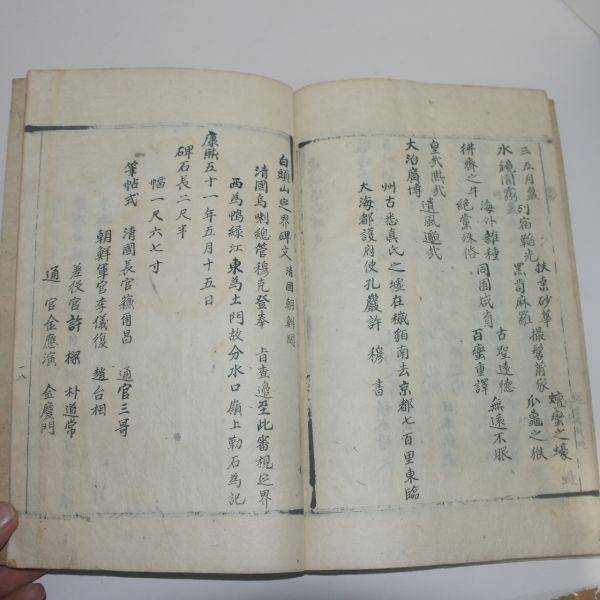 扶桑砂華 撮髻
三五月盈 列宿韜光
水鏡閒霧 黑齒麻羅
海外雜種 同囿咸育 古聖遠德 無遠不服
稗齊之斗 絶黨殊俗 百蠻重譯
皇哉熙哉 遺風邈哉
大治廣博
州古悉真氏之墟在穢貊南去京都七百里東臨
大海都護府使孔巖許 穆 書
白頭山㝎界碑文 清國朝鮮國
清國烏喇緫管穆克登奉 旨查邉至此審視㝎界
西為鴨綠江東為土門故分水口嶺上勒石為記
康熙五十一年五月十五日
碑石長二尺半
幅一尺六七寸
筆帖式 清國長官蘓爾昌 通官三哥
朝鮮軍官李儀復 趙台相
差後官許樑 朴道常
通官金應瀗 金慶門
一八